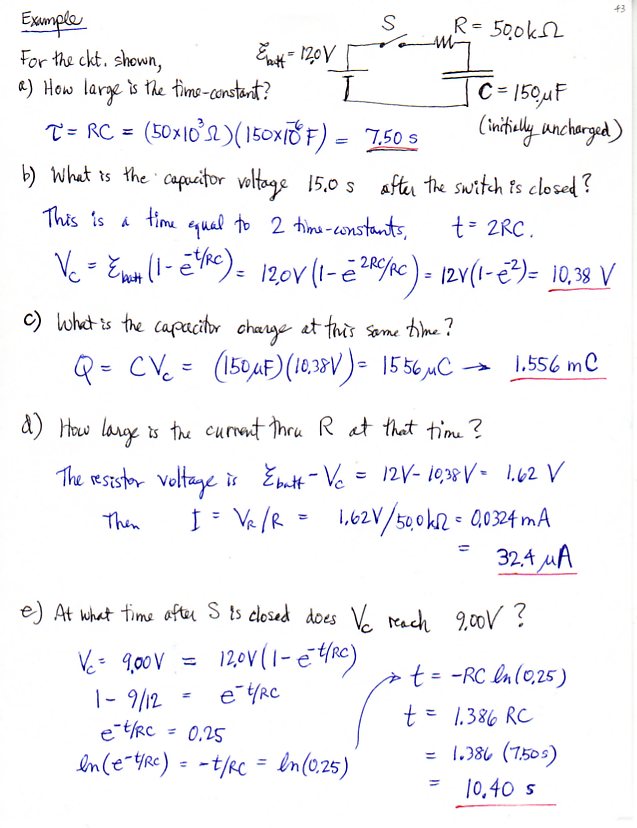 43
Example
S
R = 50.0kΩ
For the ckt. shown,
ℰbatt = 12.0V
a) How large is the time-constant?
C = 150μF
(initially uncharged)
τ = RC = (50×10³Ω)(150×10⁻⁶F) = 7.50 s
b) What is the capacitor voltage 15.0 s after the switch is closed?
This is a time equal to 2 time-constants, t = 2RC.
Vc = ℰbatt (1 - e^-t/RC) = 12.0V (1 - e^-2RC/RC) = 12V(1 - e^-2) = 10.38 V
c) What is the capacitor charge at this same time?
Q = CVc = (150μF)(10.38V) = 1556μC → 1.556 mC
d) How large is the current thru R at that time?
The resistor voltage is ℰbatt - Vc = 12V - 10.38V = 1.62 V
Then I = VR/R = 1.62V/50.0kΩ = 0.0324 mA
= 32.4 μA
e) At what time after S is closed does Vc reach 9.00V?
Vc = 9.00V = 12.0V(1 - e^-t/RC)
1 - 9/12 = e^-t/RC
e^-t/RC = 0.25
ln(e^-t/RC) = -t/RC = ln(0.25)
t = -RC ln(0.25)
t = 1.386 RC
= 1.386 (7.50s)
= 10.40 s